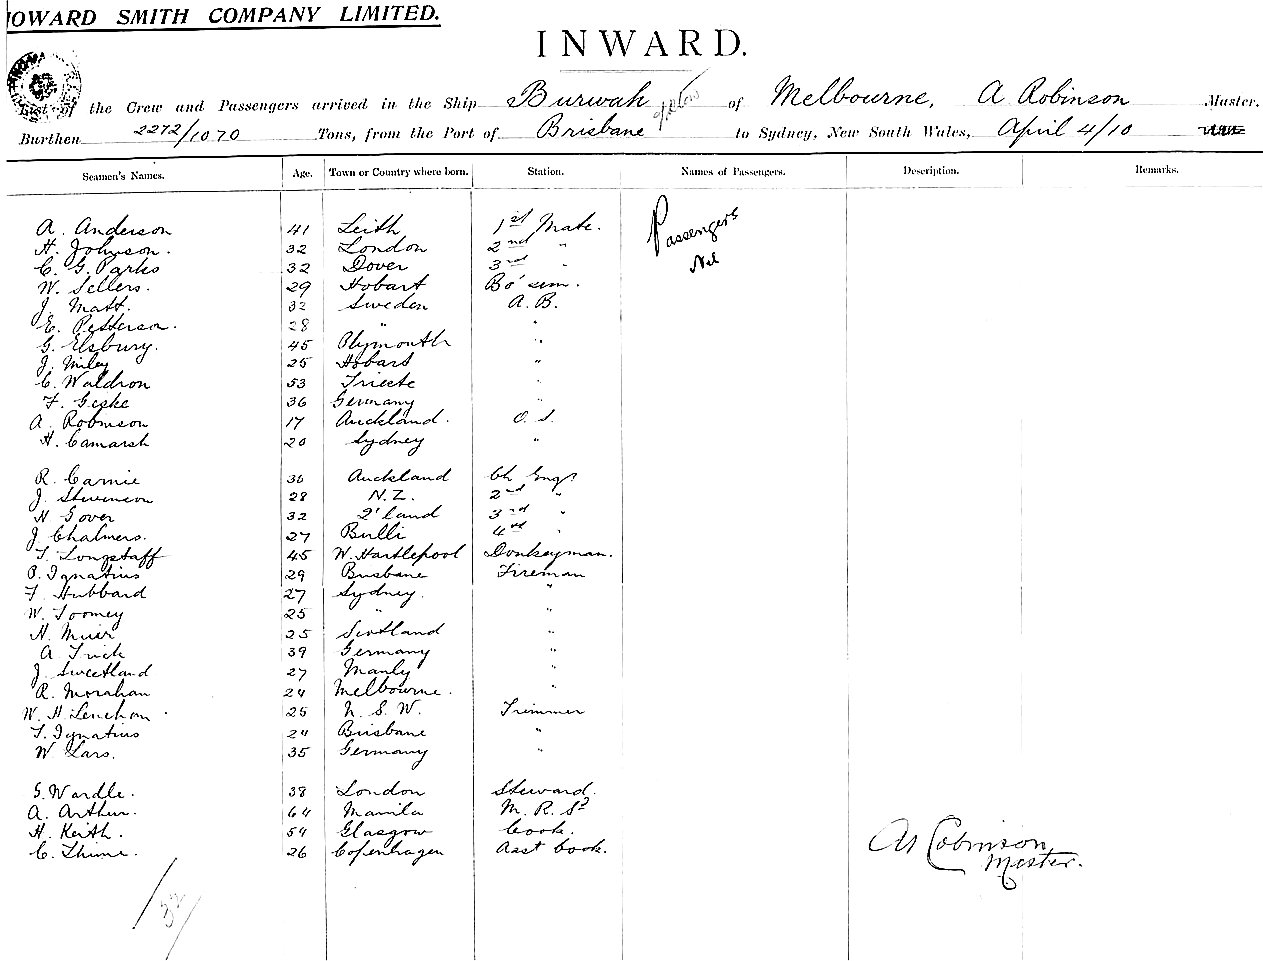 HOWARD SMITH COMPANY LIMITED.
INWARD.
List of the Crew and Passengers arrived in the Ship Burwah of Melbourne, A Robinson Master.
Burthen 2272/1070 Tons, from the Port of Brisbane to Sydney, New South Wales, April 4/10
Seamen's Names. Age. Town or Country where born. Station. Names of Passengers. Description. Remarks.
Passengers
Nil
A. Anderson 41 Leith 1st Mate.
H. Johnson. 32 London 2nd "
C. G. Parks 32 Dover 3rd "
W. Sellers. 29 Hobart Bo'sun.
J. Matt. 32 Sweden A.B.
E. Petterson. 28 " "
G. Elsbury. 45 Plymouth "
J. Miley 25 Hobart "
C. Waldron 53 Trieste "
F. Geske 36 Germany "
A. Robinson 17 Auckland. O.S.
H. Camarsh 20 Sydney "
R. Carnie 36 Auckland Ch Engr
J. Stevenson 28 N.Z. 2nd "
H Gover 32 Q'land 3rd "
J Chalmers. 27 Bulli 4th "
T. Longstaff 45 W. Hartlepool Donkeyman.
P. Ignatius 29 Brisbane Fireman
F Hubbard 27 Sydney. "
W. Toomey 25 " "
H. Muir 25 Scotland "
A Frick 39 Germany "
J. Sweetland 27 Manly "
R. Morahan 24 Melbourne. "
W. H. Lenehan 25 N.S.W. Trimmer
T. Ignatius 24 Brisbane "
W Lars. 35 Germany "
G. Wardle. 38 London Steward.
A. Arthur. 64 Manila M.R.S.
H. Keith. 54 Glasgow Cook.
C. Thime. 26 Copenhagen Asst Cook.
A Robinson
Master.
32